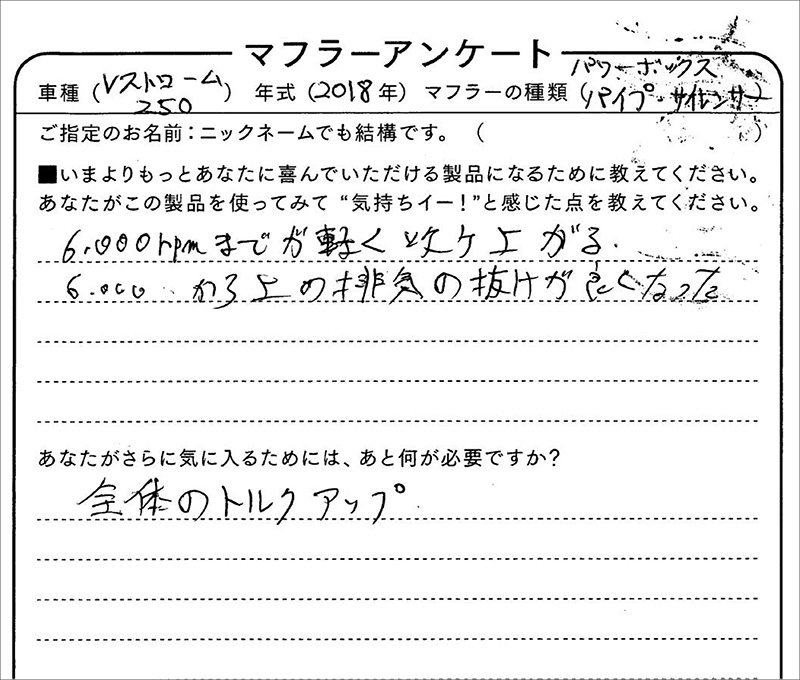 マフラーアンケート
車種（Vストローム250）　年式（2018年）　マフラーの種類（パワーボックスパイプ・サイレンサー）
ご指定のお名前：ニックネームでも結構です。（　　　）
■いまよりもっとあなたに喜んでいただける製品になるために教えてください。
あなたがこの製品を使ってみて“気持ちイー！”と感じた点を教えてください。
6.000rpmまでが軽く吹ケ上がる.
6.000 から上の排気の抜けが良くなった
あなたがさらに気に入るためには、あと何が必要ですか？
全体のトルクアップ